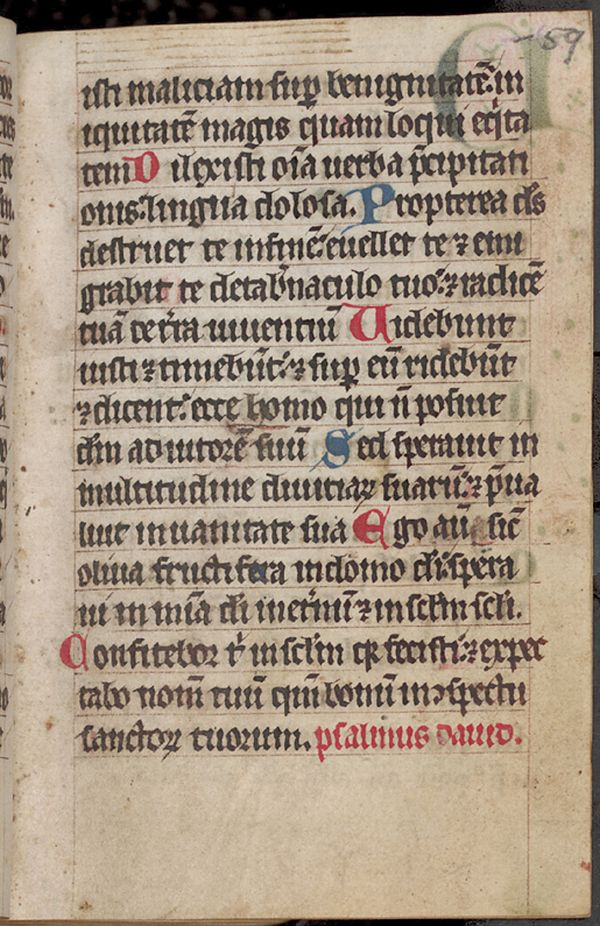 59
isti maliciam sup̱ benignitatē: in
iquitatē magis quam loqui eq̓ta
tem Dilexisti oīa uerba p̄cipitati
onis: lingua dolosa. Propterea ds̄
destruet te infinē: euellet te ⁊ emi
grabit te detab̓naculo tuo: ⁊ radicē
tuā de t̓ra uiuentiū Uidebunt
iusti ⁊ timebūt: ⁊ sup̱ eū ridebūt
⁊ dicent: ecce homo qui n̄ posuit
dm̄ adiutorē suū Sed sperauit in
multitudine diuiciaꝝ suarū: ⁊ p̄ua
luit inuanitate sua Ego aū sic̄
oliua fructifera indomo dī: spera
ui in mīa dī inet̓nū ⁊ insc̄lm sc̄li.
Confitebor t̄ insc̄lm qꝛ fecisti: ⁊ expec
tabo nom̄ tuū qm̄ bonū inↄspectu
sanctoꝝ tuorum. psalmus dauid.